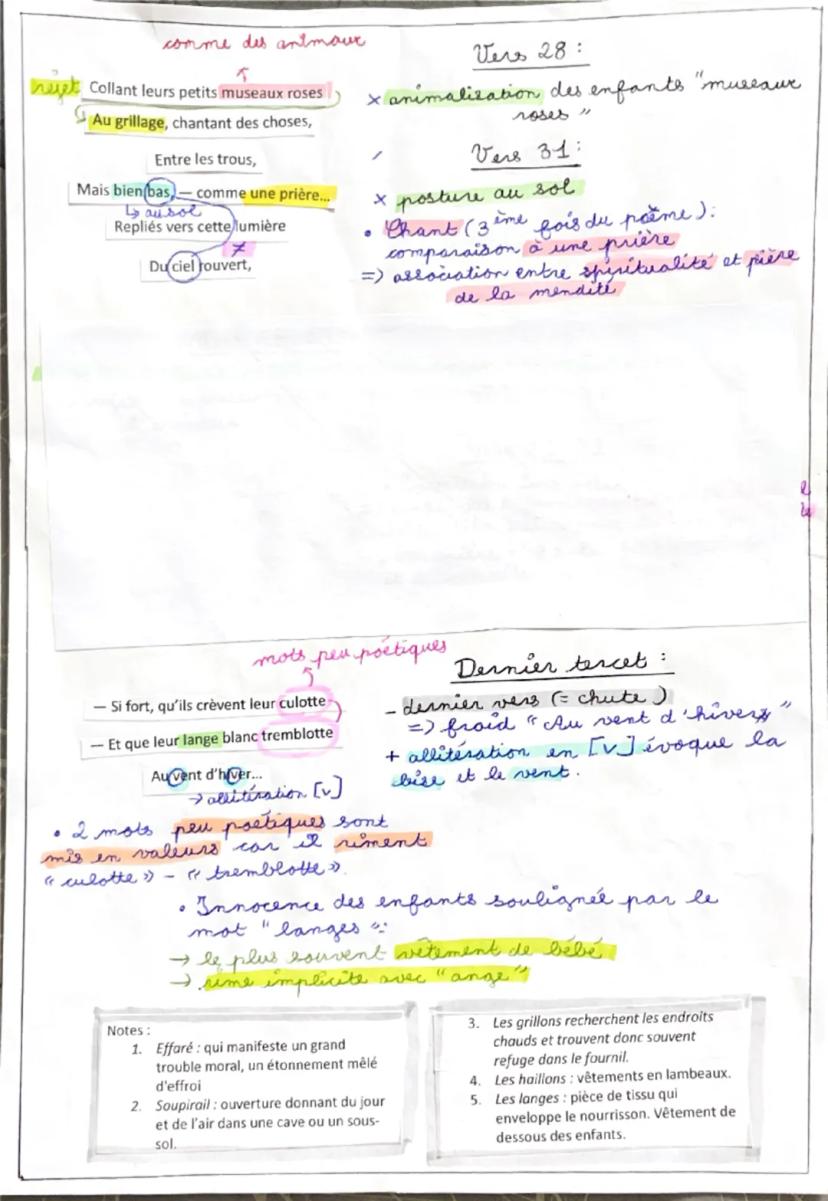 comme des animaux
rejet Collant leurs petits museaux roses
Au grillage, chantant des choses,
Entre les trous,
Mais bien bas, — comme une prière...
↳ au sol
Repliés vers cette lumière
≠
Du ciel rouvert,
Vers 28 :
× animalisation des enfants "museaux
roses"
Vers 31 :
× posture au sol
• Chant (3ème fois du poème) :
comparaison à une prière
=> association entre spiritualité et pière
de la mendité
mots peu poétiques
— Si fort, qu'ils crèvent leur culotte
— Et que leur lange blanc tremblotte
Au vent d'hiver...
→ allitération [v]
Dernier tercet :
- dernier vers (= chute)
=> froid "Au vent d'hivers"
+ allitération en [v] évoque la
bise et le vent.
• 2 mots peu poétiques sont
mis en valeurs car il riment
« culotte » – « tremblotte ».
• Innocence des enfants soulignée par le
mot "langes" :
→ le plus souvent vêtement de bébé
→ rime implicite avec "ange"
Notes :
1. Effaré : qui manifeste un grand
trouble moral, un étonnement mêlé
d'effroi
2. Soupirail : ouverture donnant du jour
et de l'air dans une cave ou un sous-
sol.
3. Les grillons recherchent les endroits
chauds et trouvent donc souvent
refuge dans le fournil.
4. Les haillons : vêtements en lambeaux.
5. Les langes : pièce de tissu qui
enveloppe le nourrisson. Vêtement de
dessous des enfants.